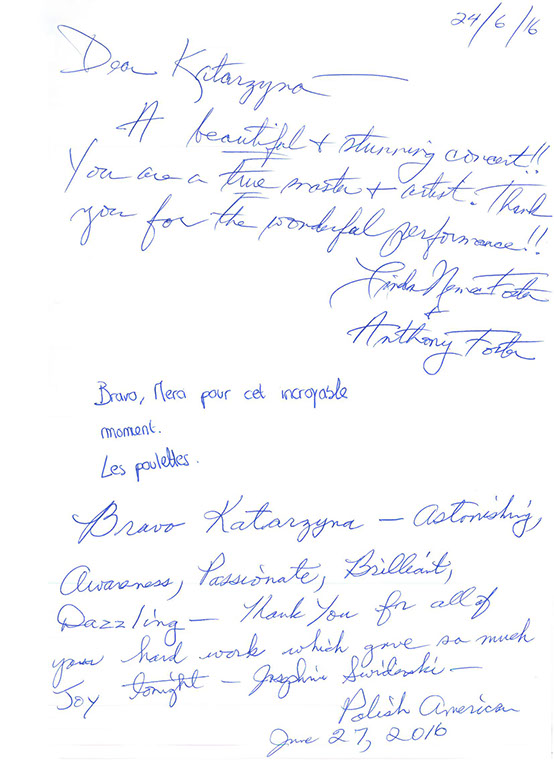 24/6/16
Dear Katarzyna
A beautiful + stunning concert!!
You are a true master + artist. Thank
you for the wonderful performance!!
Linda Nemec Foster
+
Anthony Foster
Bravo, Merci pour cet incroyable
moment.
Les poulettes.
Bravo Katarzyna – Astonishing,
Awareness, Passionate, Brilliant,
Dazzling – Thank You for all of
your hard work which gave so much
Joy tonight – Josephine Swiderski –
Polish American
June 27, 2016